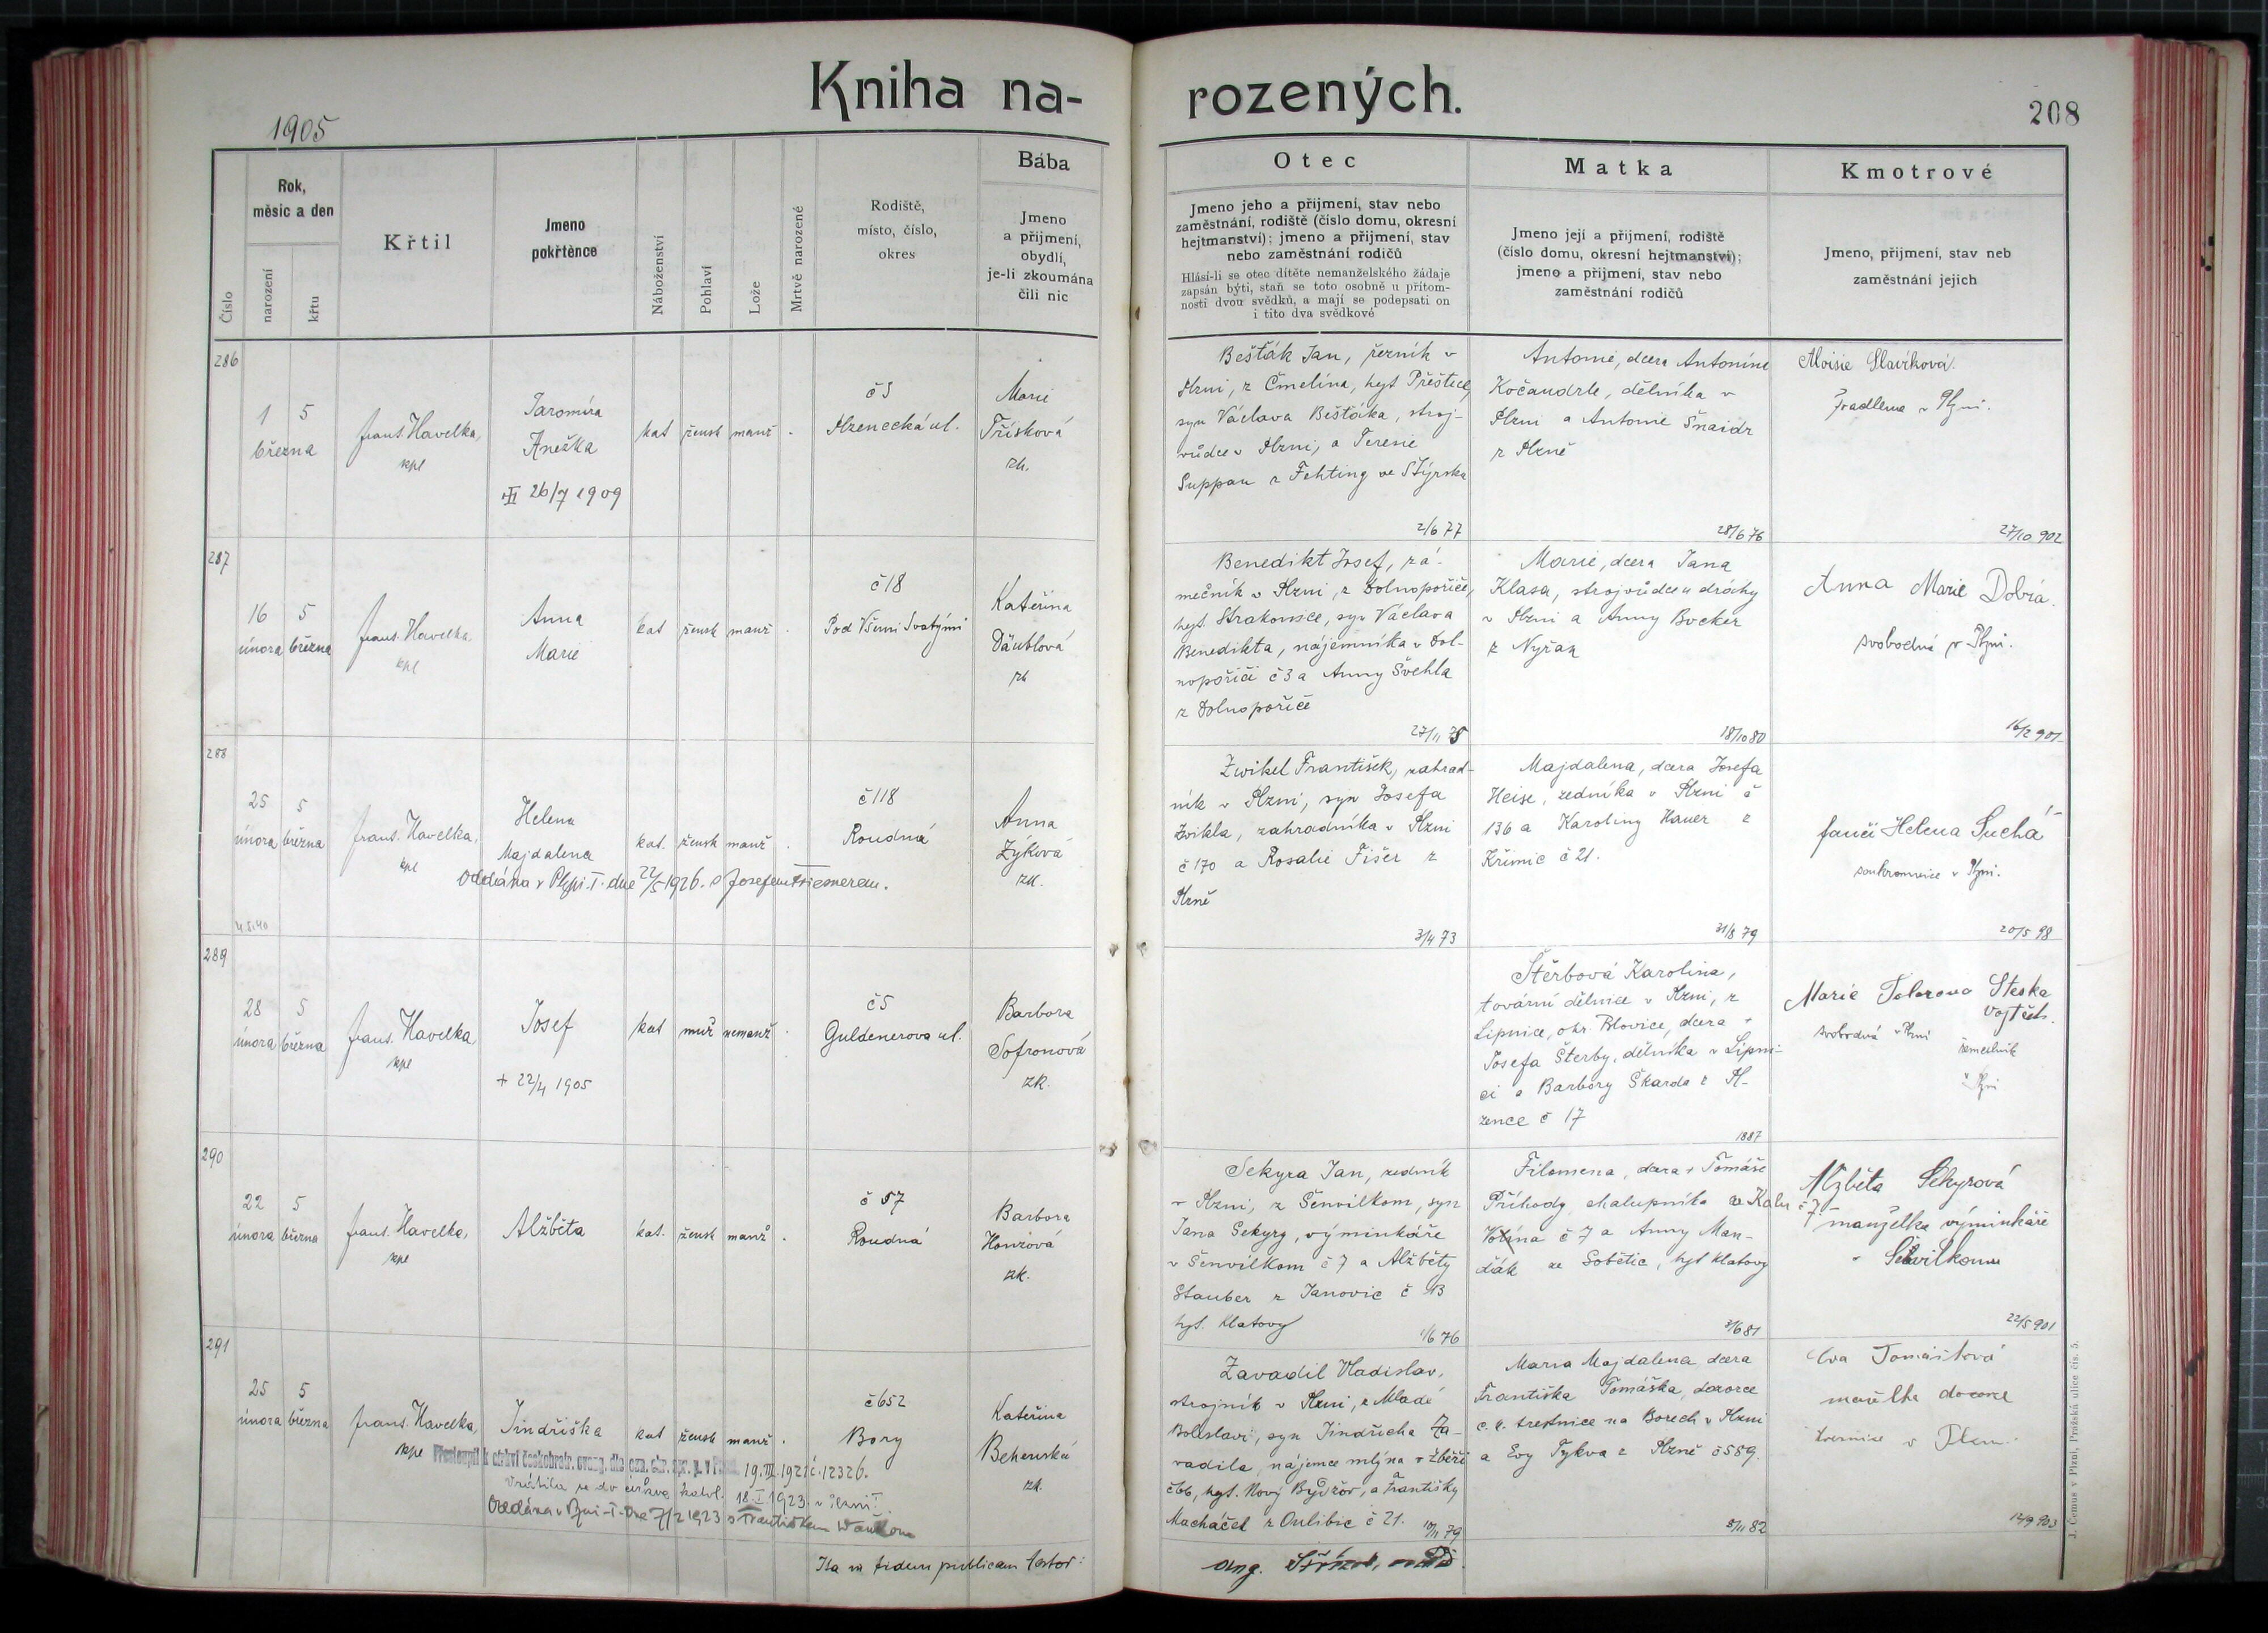 Kniha na-
rozených.
208
1905
Číslo
Rok,
měsíc a den
narození
křtu
Křtil
Jmeno
pokřtěnce
Náboženství
Pohlaví
Lože
Mrtvě narozené
Rodiště,
místo, číslo,
okres
Bába
Jmeno
a přijmení,
obydlí,
je-li zkoumána
čili nic
Otec
Jmeno jeho a přijmení, stav nebo
zaměstnání, rodiště (číslo domu, okresní
hejtmanství); jmeno a přijmení, stav
nebo zaměstnání rodičů
Hlásí-li se otec dítěte nemanželského žádaje
zapsán býti, staň se toto osobně u přítom-
nosti dvou svědků, a mají se podepsati on
i tito dva svědkové
Matka
Jmeno její a přijmení, rodiště
(číslo domu, okresní hejtmanství);
jmeno a přijmení, stav nebo
zaměstnání rodičů
Kmotrové
Jmeno, přijmení, stav neb
zaměstnání jejich
286
1 5
března
frant. Havelka,
kpl
Jaromíra
Anežka
26/7 1909
kat žensk manž .
č 3
Plzenecká ul.
Marie
Třísková
zk.
Bešťák Jan, řezník v
Plzni, z Čmelína, hejt Přeštice,
syn Václava Bešťáka, stroj-
vůdce v Plzni, a Terezie
Suppan z Fehting ve Štýrsku
2/6 77
Antonie, dcera Antonína
Kočandrle, dělníka v
Plzni a Antonie Šnaidr
z Plzně
28/6 76
Aloisie Slavíková
pradlena v Plzni.
27/10 902
287
16 5
února března
frant. Havelka,
kpl
Anna
Marie
kat žensk manž .
č 18
Pod Všemi Svatými
Kateřina
Däublová
zk
Benedikt Josef, zá-
mečník v Plzni, z Dolnopoříče,
hejt. Strakonice, syn Václava
Benedikta, nájemníka v Dol-
nopoříčí č 3 a Anny Švehla
z Dolnopoříče
27/11 78
Marie, dcera Jana
Klasa, strojvůdce u dráhy
v Plzni a Anny Bucker
z Nýřan
18/10 80
Anna Marie Dobrá.
svobodná v Plzni.
16/2 901
288
25 5
února března
frant. Havelka,
kpl
Helena
Majdalena
kat. žensk manž .
č 118
Roudná
Anna
Zýková
zk.
Oddána v Plzni-I. dne 22/5 1926. s Josefem
4.5.40
Zwikel František, zahrad-
ník v Plzni, syn Josefa
Zwikla, zahradníka v Plzni
č 170 a Rosalie Fišer z
Plzně
3/4 73
Majdalena, dcera Josefa
Heise, zedníka v Plzni č
136 a Karoliny Hauer z
Křimic č 21.
31/8 79
Helena Suchá
soukromnice v Plzni.
20/5 98
289
28 5
února března
frant. Havelka,
kpl
Josef
+ 22/4 1905
kat muž nemanž .
č 5
Guldenerova ul.
Barbora
Sofronová
zk.
Štěrbová Karolina,
tovární dělnice v Plzni, z
Lipnice, okr. Blovice, dcera +
Josefa Štěrby, dělníka v Lipni-
ci a Barbory Škarda z Pl-
zence č 17
1887
Marie Steska
Vojtěch.
svobodná v Plzni
řemeslník
v Plzni
290
22 5
února března
frant. Havelka,
kpl
Alžběta
kat. žensk manž .
č 57
Roudná
Barbora
Honzová
zk.
Sekyra Jan, zedník
v Plzni, z Šenvilkom, syn
Jana Sekyry, výminkáře
v Šenvilkom č 7 a Alžběty
Stauber z Janovic č 13
hejt. Klatovy
1/6 76
Filomena, dcera + Tomáše
Příhody, chalupníka
č 7 a Anny Man-
ďák ze Sobětic, hejt Klatovy
3/6 81
Alžběta Sekyrová
manželka výminkáře
22/5 901
291
25 5
února března
frant. Havelka,
kpl
Jindřiška
kat žensk manž .
č 652
Bory
Kateřina
Beherská
zk.
19.III.1921 č.12326.
Vrátila se do církve katol. 18.I.1923. v Plzni I
Oddána v Plzni-I. dne 7/2 1923 s Františkem
Zavadil Vladislav,
strojník v Plzni, z Mladé
Boleslavi, syn Jindřicha Za-
vadila, nájemce mlýna v Zběři
č 66, hejt. Nový Bydžov, a Františky
Macháček z Oulibic č 21. 10/11 79
Maria Majdalena dcera
Františka Tomáška, dozorce
c.k. trestnice na Borech v Plzni
a Evy Tykva z Plzně č 589.
8/11 82
Eva Tomášková
manželka dozorce
trestnice v Plzni
12/9 903
Ita in fidem publicam testor:
J. Čemus v Plzni, Pražská ulice čís. 5.